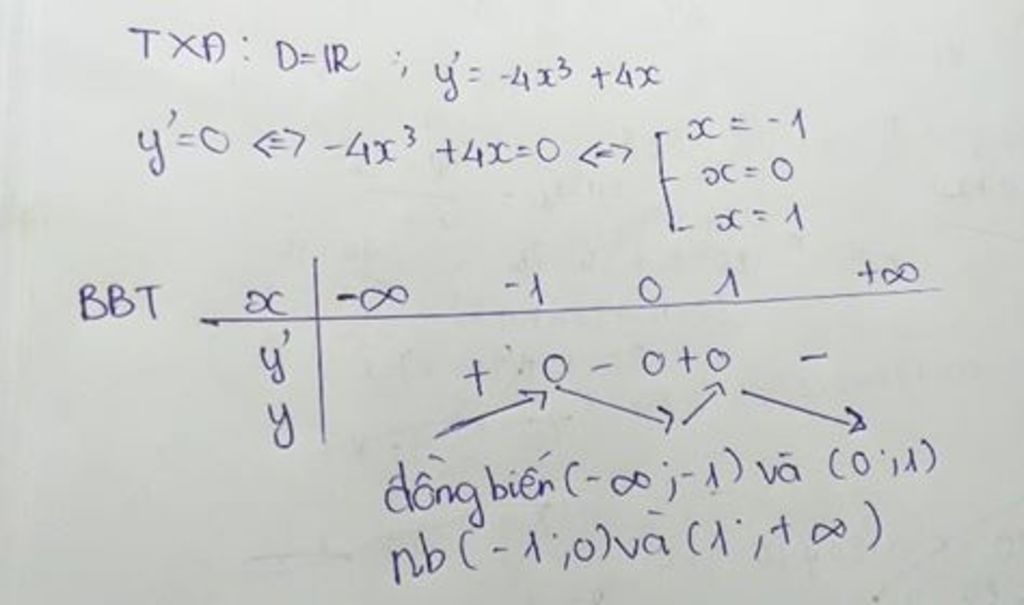 TXĐ: D=IR ; y'= -4x³ +4x
y'=0 <=> -4x³ +4x=0 <=> [ x = -1
x = 0
x = 1
BBT x -∞ -1 0 1 +∞
y' + 0 - 0 + 0 -
y
đồng biến (-∞;-1) và (0;1)
nb (-1;0) và (1;+∞)